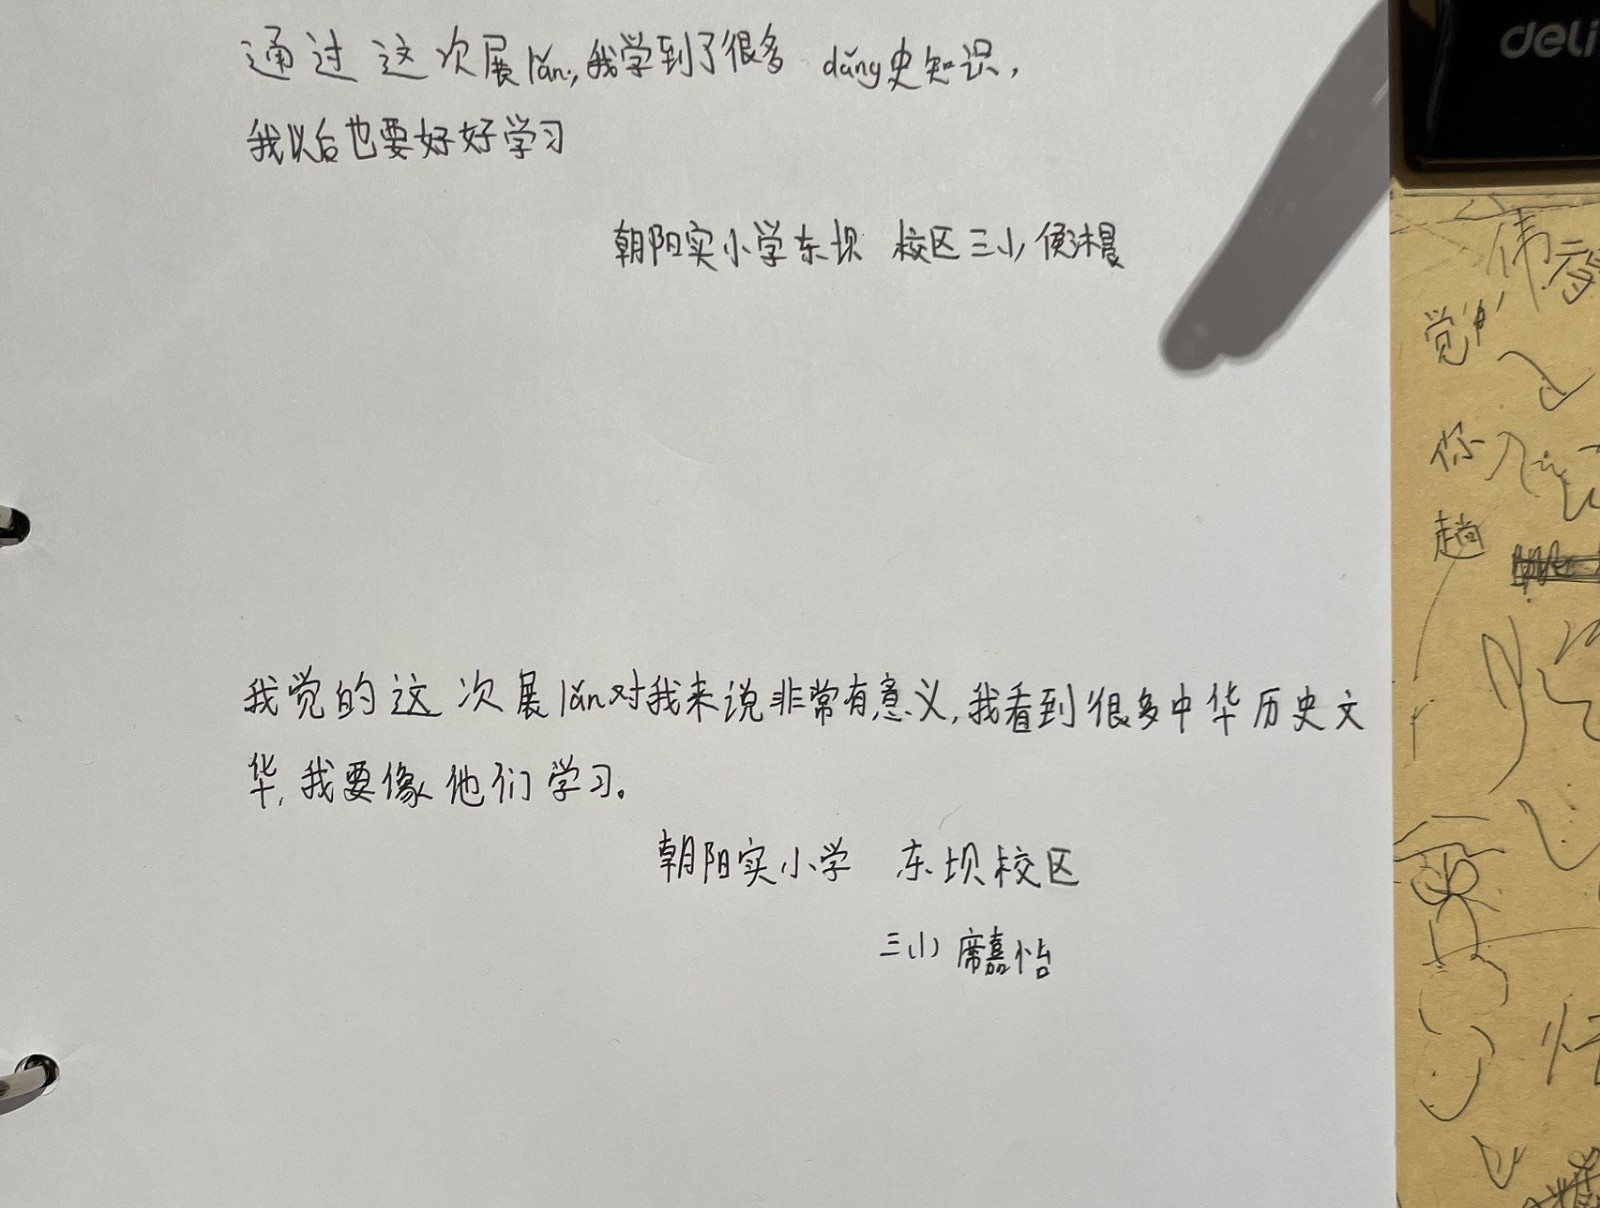 通过这次展lǎn，我学到了很多 dǎng史知识，
我以后也要好好学习
朝阳实小学东坝 校区三小 侯沐晨
我觉的这次展lǎn对我来说非常有意义，我看到很多中华历史文
华，我要像他们学习。
朝阳实小学 东坝校区
三小 席嘉怡
deli
伟
觉
你
趟